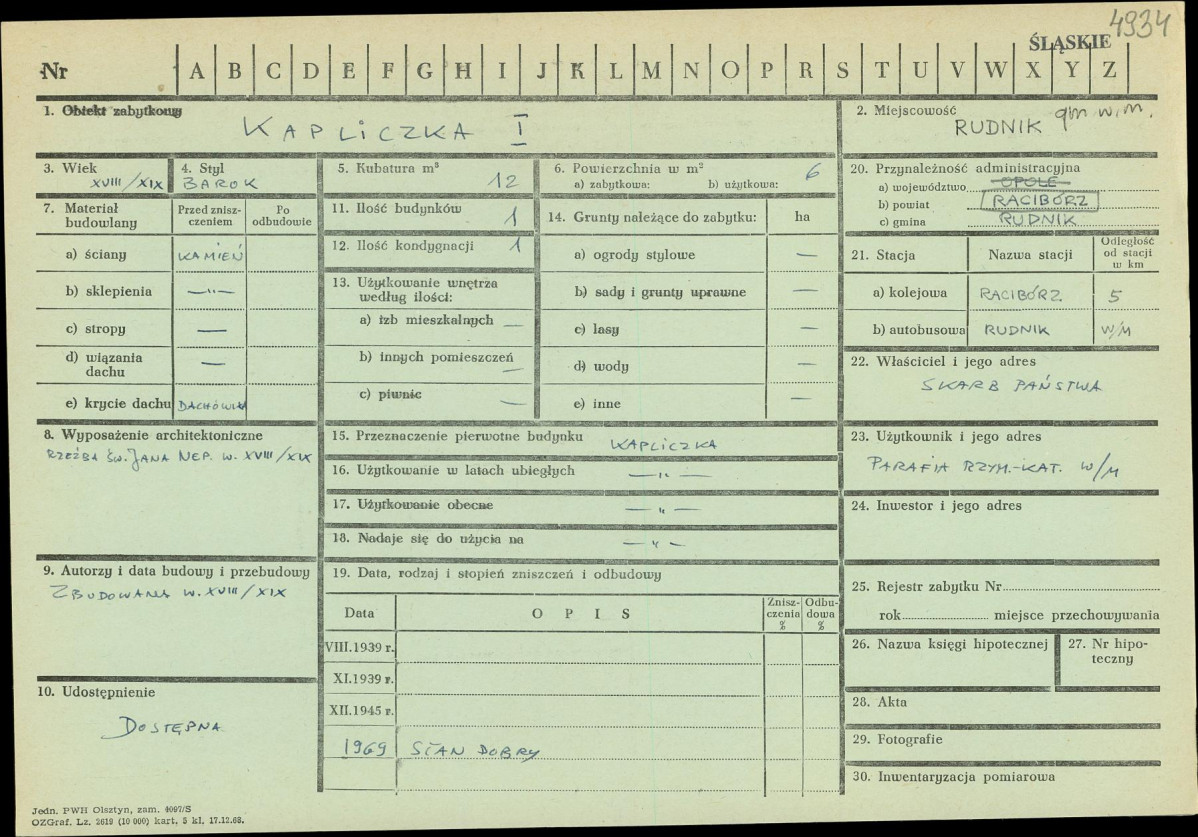 4934
ŚLĄSKIE
Nr A B C D E F G H I J K L M N O P R S T U V W X Y Z
1. Obiekt zabytkowy
KAPLICZKA I
2. Miejscowość
RUDNIK gm w.m.
3. Wiek
XVIII/XIX
4. Styl
BAROK
5. Kubatura m³
12
6. Powierzchnia w m²
a) zabytkowa: b) użytkowa:
6
20. Przynależność administracyjna
a) województwo OPOLE
b) powiat RACIBÓRZ
c) gmina RUDNIK
7. Materiał budowlany
Przed zniszczeniem
Po odbudowie
a) ściany KAMIEŃ
b) sklepienia —„—
c) stropy —
d) wiązania dachu —
e) krycie dachu DACHÓWKA
11. Ilość budynków 1
12. Ilość kondygnacji 1
13. Użytkowanie wnętrza
według ilości:
a) izb mieszkalnych —
b) innych pomieszczeń —
c) piwnic —
14. Grunty należące do zabytku: ha
a) ogrody stylowe —
b) sady i grunty uprawne —
c) lasy —
d) wody —
e) inne —
21. Stacja Nazwa stacji Odległość od stacji w km
a) kolejowa RACIBÓRZ 5
b) autobusowa RUDNIK W/M
22. Właściciel i jego adres
SKARB PAŃSTWA
8. Wyposażenie architektoniczne
RZEŹBA ŚW. JANA NEP. W. XVIII/XIX
15. Przeznaczenie pierwotne budynku KAPLICZKA
16. Użytkowanie w latach ubiegłych —„—
17. Użytkowanie obecne —„—
18. Nadaje się do użycia na —„—
23. Użytkownik i jego adres
PARAFIA RZYM.-KAT. W/M
24. Inwestor i jego adres
9. Autorzy i data budowy i przebudowy
ZBUDOWANA W. XVIII/XIX
19. Data, rodzaj i stopień zniszczeń i odbudowy
Data OPIS Zniszczenia % Odbudowa %
VIII.1939 r.
XI.1939 r.
XII.1945 r.
1969 STAN DOBRY
25. Rejestr zabytku Nr
rok miejsce przechowywania
26. Nazwa księgi hipotecznej
27. Nr hipoteczny
28. Akta
29. Fotografie
30. Inwentaryzacja pomiarowa
10. Udostępnienie
DOSTĘPNA
Jedn. PWH Olsztyn, zam. 4097/S
OZGraf. Lz. 2619 (10 000) kart, 5 kl. 17.12.68.